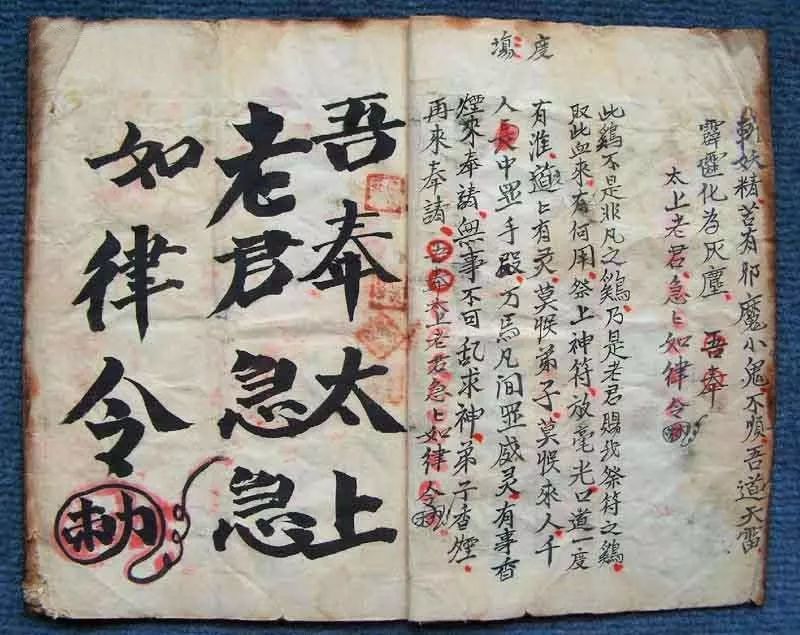 斬妖精苦有邪魔小鬼不順吾道天雷
霹靂化為灰塵 吾奉
太上老君急匕如律令勅
度塲
此鷄不是非凡之鷄乃是老君賜我祭符之鷄
取此血來有何用祭上神符放毫光口道一度
有准道匕有灵莫悮弟子莫悮來人千
人長中手殿万馬凡间威灵有事香
煙來奉請無事不可乱求神弟子香煙
再來奉請吾奉太上老君急匕如律令勅
吾奉太上
老君急急
如律令
勅